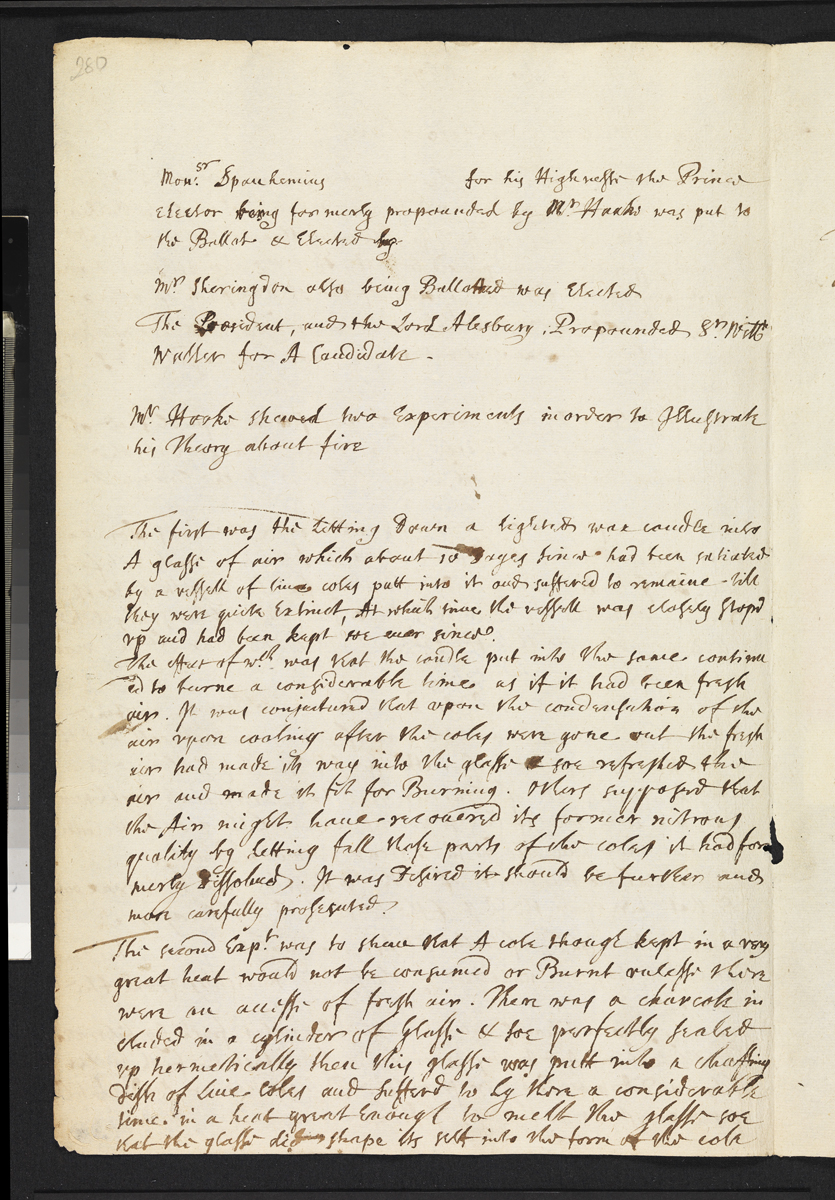 280
Monsr. Spanhemius for his Highnesse the Prince
Elector being formerly propounded by Mr Hooke was put to
the Ballot & Elected
Mr Sheringdon also being Ballotted was Elected
The President, and the Lord Alesbury. Propounded Sr. Willm
Waller for A Candidate.
Mr Hooke shewed two Experiments in order to Illustrate
his Theory about fire
The first was the letting Down a lighted wax candle into
A glasse of air which about 10 dayes since had been satiated
by a vessell of live coles putt into it and suffered to remaine till
they were quite Extinct, At which time the vessell was closely stopd
up and had been kept soe ever since.
The effect of wch was that the candle put into the same continu
ed to burne a considerable time as if it had been fresh
air. It was conjectured that upon the condensation of the
air upon cooling after the coles were gone out the fresh
air had made its way into the glasse & soe refreshed the
air and made it fit for Burning. Others supposed that
the Air might have recovered its former nitrous
quality by letting fall those parts of the coles it had for
merly Dissolved. It was Desired it should be further and
more carefully prosecuted.
The second Expt. was to shew that A cole though kept in a very
great heat would not be consumed or Burnt unlesse there
were an accesse of fresh air. There was a charcole in
cluded in a cylinder of Glasse & soe perfectly sealed
up hermetically then this glasse was putt into a chaffing
Dish of live Coles and sufferd to ly there a considerable
time in a heat great Enough to melt the glasse soe
that the glasse did shape its self into the form of the cole